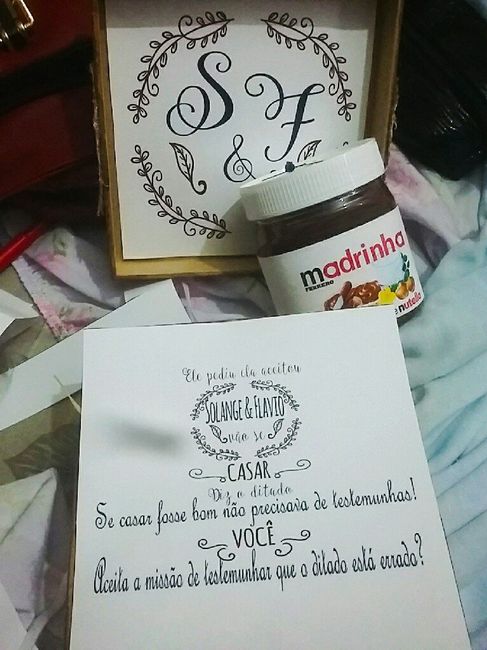 S & F
madrinha
FERRERO
nutella
Ele pediu ela aceitou
SOLANGE & FLAVIO
vão se
CASAR
Diz o ditado
Se casar fosse bom não precisava de testemunhas!
VOCÊ
Aceita a missão de testemunhar que o ditado está errado?